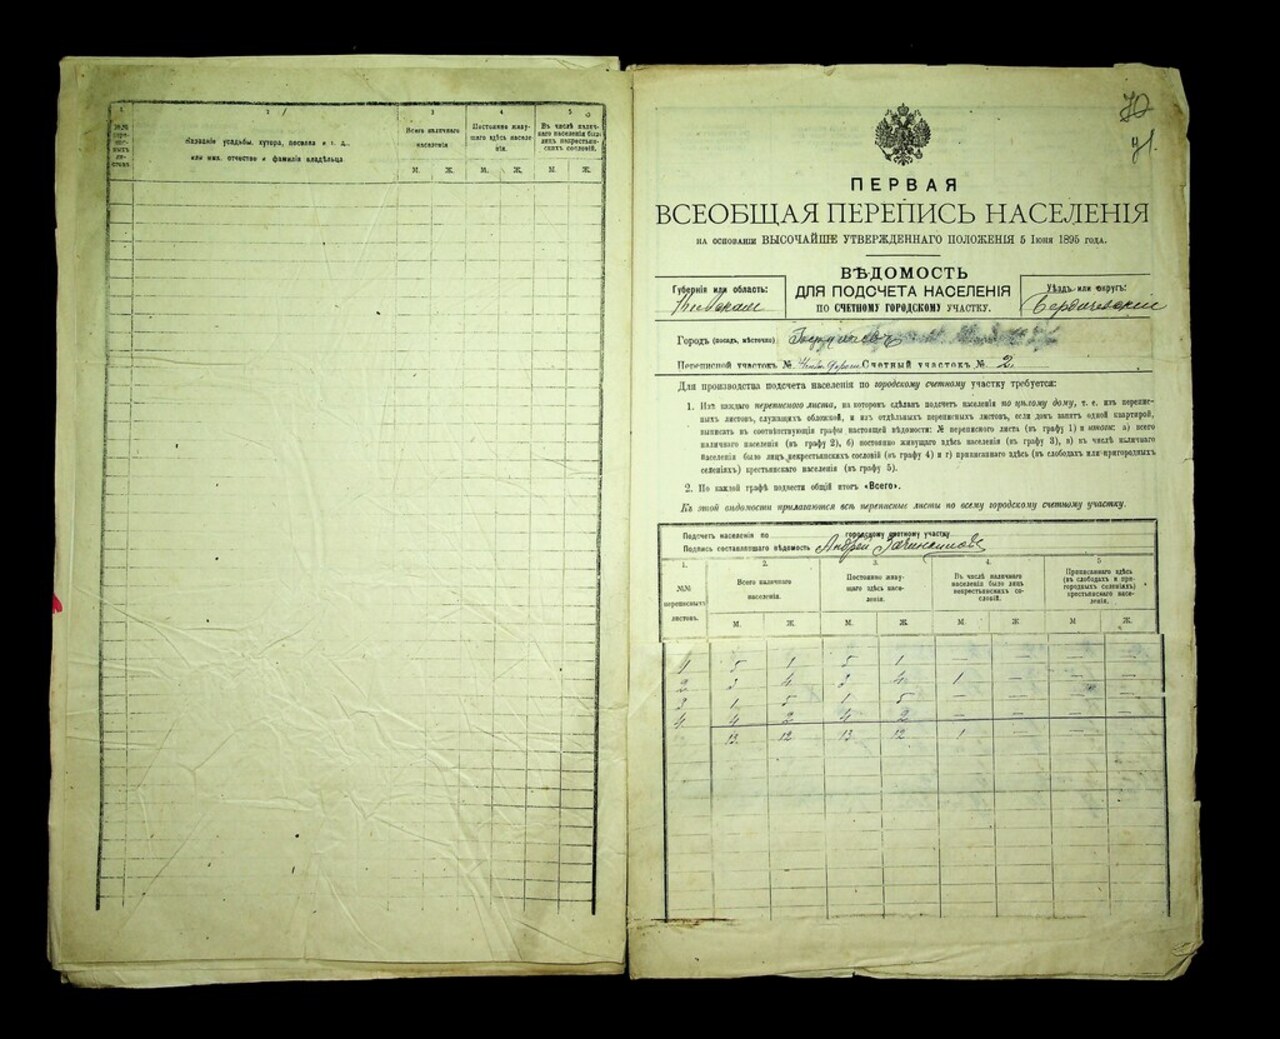 1.
2
3
4
5
№№ пере- пис- ныхъ ли- стовъ
Названіе усадьбы, хутора, поселка и т. д.,
или имя, отчество и фамилія владѣльца.
Всего наличнаго
населенія
Постоянно живу-
щаго здѣсь населе-
нія.
Въ числѣ налич-
наго населенія было
лицъ некрестьян-
скихъ сословій.
М. Ж. М. Ж. М. Ж.
70
71.
ПЕРВАЯ
ВСЕОБЩАЯ ПЕРЕПИСЬ НАСЕЛЕНІЯ
НА ОСНОВАНІИ ВЫСОЧАЙШЕ УТВЕРЖДЕННАГО ПОЛОЖЕНІЯ 5 ІЮНЯ 1895 ГОДА.
ВѢДОМОСТЬ
ДЛЯ ПОДСЧЕТА НАСЕЛЕНІЯ
ПО СЧЕТНОМУ ГОРОДСКОМУ УЧАСТКУ.
Губернія или область:
Кіевская
Уѣздъ или округъ:
Бердичевскій
Городъ (посадъ, мѣстечко) Бердичевъ
Переписной участокъ № Счетный участокъ № 2.
Для производства подсчета населенія по городскому счетному участку требуется:
1. Изъ каждаго переписного листа, на которомъ сдѣланъ подсчетъ населенія по цѣлому дому, т. е. изъ перепис-
ныхъ листовъ, служащихъ обложкой, и изъ отдѣльныхъ переписныхъ листовъ, если домъ занятъ одной квартирой,
выписать въ соотвѣтствующія графы настоящей вѣдомости: № переписного листа (въ графу 1) и итоги: а) всего
наличнаго населенія (въ графу 2), б) постоянно живущаго здѣсь населенія (въ графу 3), в) въ числѣ наличнаго
населенія было лицъ некрестьянскихъ сословій (въ графу 4) и г) приписаннаго здѣсь (въ слободахъ или пригородныхъ
селеніяхъ) крестьянскаго населенія (въ графу 5).
2. По каждой графѣ подвести общій итогъ «Всего».
Къ этой вѣдомости прилагаются всѣ переписные листы по всему городскому счетному участку.
Подсчетъ населенія по городскому счетному участку
Подпись составлявшаго вѣдомость Андрей
1. 2. 3. 4. 5
№№
переписныхъ
листовъ.
Всего наличнаго
населенія.
Постоянно живу-
щаго здѣсь насе-
ленія.
Въ числѣ наличнаго
населенія было лицъ
некрестьянскихъ со-
словій.
Приписаннаго здѣсь
(въ слободахъ и при-
городныхъ селеніяхъ)
крестьянскаго насе-
ленія.
М. Ж. М. Ж. М. Ж. М Ж.
1 5 1 5 1 — — — —
2 3 4 3 4 1 — — —
3 1 5 1 5 — — — —
4 4 2 4 2 — — — —
13 12 13 12 1 — — —